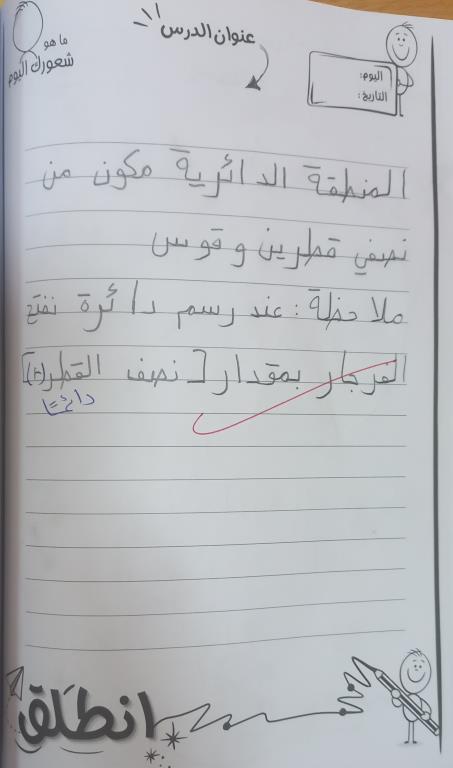 ما هو
شعورك اليوم
عنوان الدرس
اليوم:
التاريخ:
المنطقة الدائرية مكون من
نصفي قطرين و قوس
ملاحظة: عند رسم دائرة نفتح
الفرجار بمقدار [نصف القطر(٢)]
دائمًا
انطلق